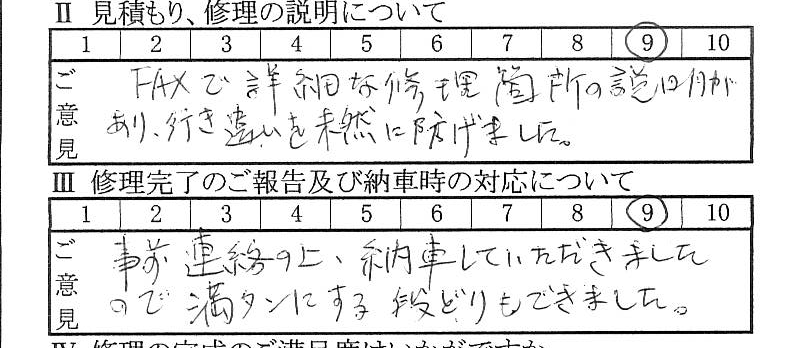 Ⅱ 見積もり、修理の説明について
1 2 3 4 5 6 7 8 9 10
ご意見
FAXで詳細な修理箇所の説明が
あり、行き違いを未然に防げました。
Ⅲ 修理完了のご報告及び納車時の対応について
1 2 3 4 5 6 7 8 9 10
ご意見
事前連絡の上、納車していただきました
ので満タンにする段どりもできました。
Ⅳ 修理の完成のご満足度はいかがですか